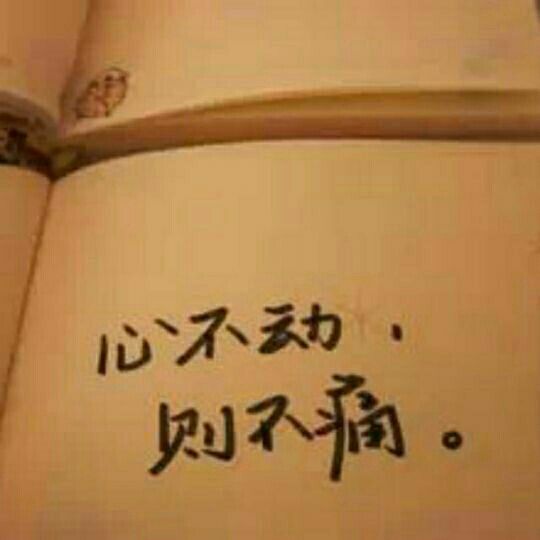 心不动,
则不痛。